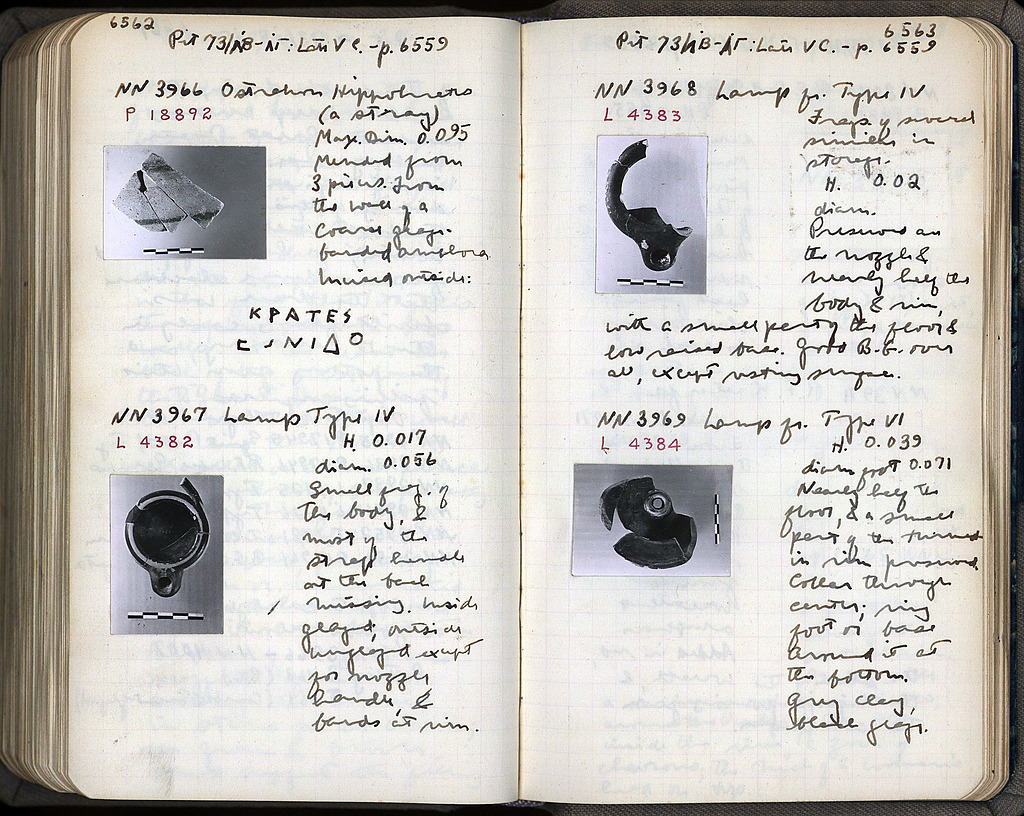 6562
Pit 73/ΙΒ-ΙΓ: Late V C. - p. 6559
NN 3966 Ostrakon Hippokrates
P 18892
(a stray)
Max. Dim. 0.095
Mended from
3 pieces. From
the wall of a
coarse glaze-
banded amphora
Incised outside:
ΚΡΑΤΕS
NN 3967 Lamp Type IV
L 4382
H. 0.017
diam. 0.056
Small frag. of
the body, &
most of the
strap handle
at the back
missing. Inside
glazed; outside
unglazed except
for nozzle
handle, &
bands at rim.
6563
Pit 73/ΙΒ-ΙΓ: Late V C. - p. 6559
NN 3968 Lamp fr. Type IV
L 4383
Frags of several
similar in
storage.
H. 0.02
diam.
Preserved are
the nozzle &
nearly half the
body & rim,
with a small part of the floor &
low raised base. Good B.G. over
all, except resting surface.
NN 3969 Lamp fr. Type VI
L 4384
H. 0.039
diam foot 0.071
Nearly half the
floor, & a small
part of the turned
in rim preserved
Collar through
center; ring
foot or base
around it at
the bottom.
Grey clay,
black glaze.